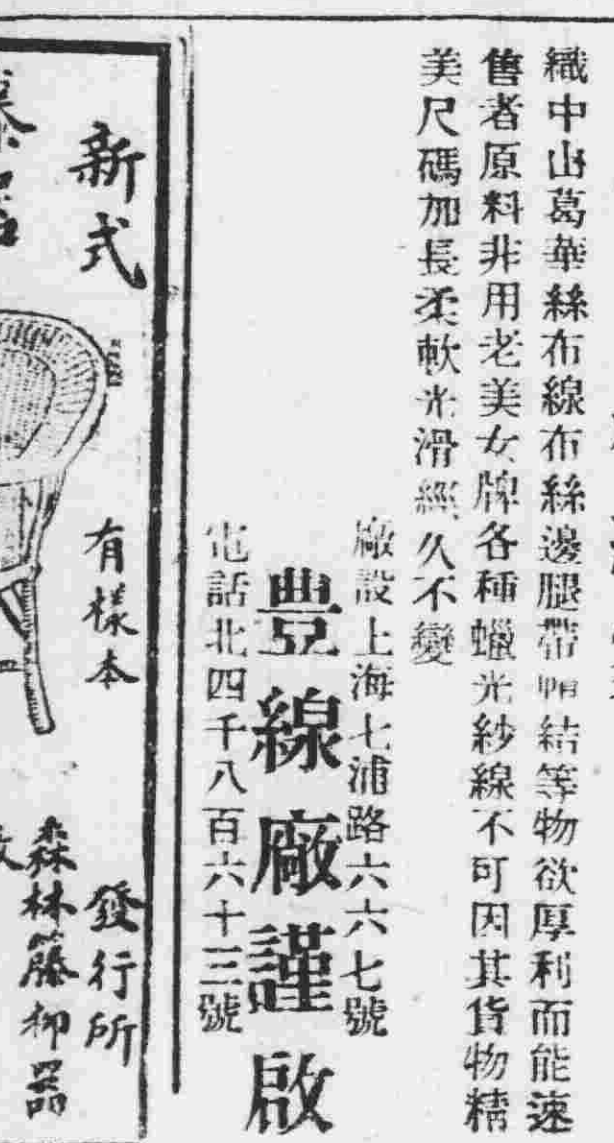 織中山葛華絲布線布絲邊腿帶帽結等物欲厚利而能速
售者原料非用老美女牌各種蠟光紗線不可因其貨物精
美尺碼加長柔軟光滑經久不變
廠設上海七浦路六六七號
豊線廠謹啟
電話北四千八百六十三號
新式
有樣本
發行所
森林籐柳器